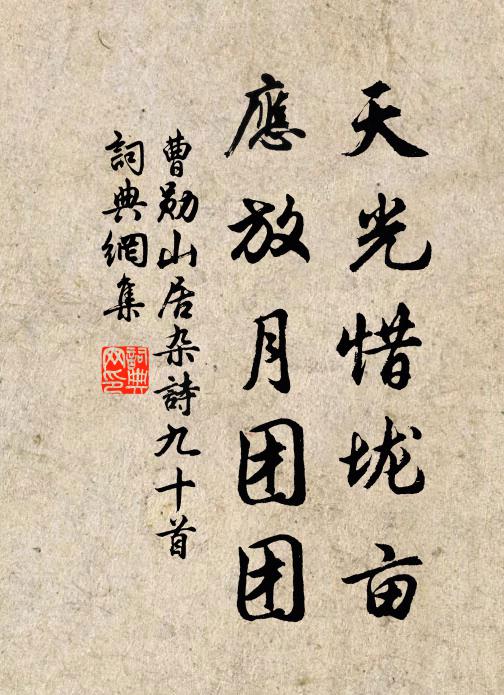 天光惜垅亩
應放月团团
曹勋山居杂詩九十首
詞典網集
詞典
网印